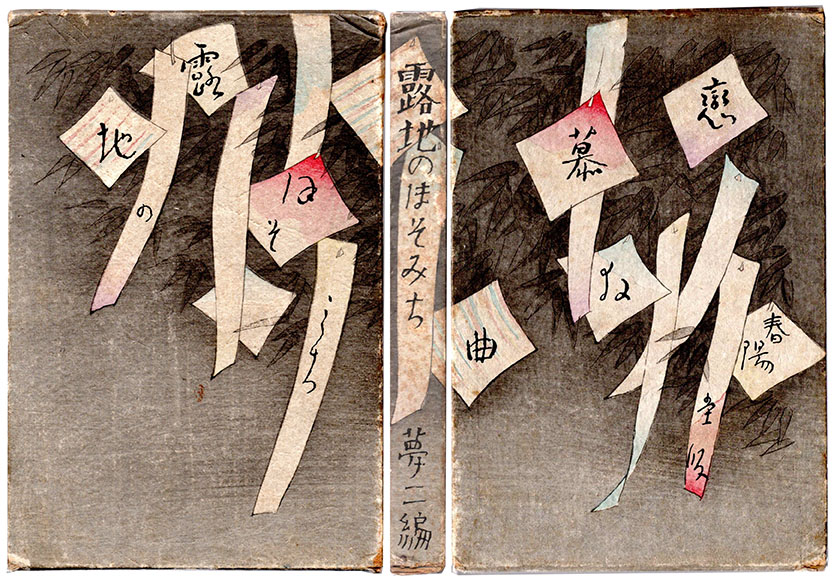 露
地
の
ほそ
みち
露地のほそみち
夢二編
戀
慕
夜
曲
春陽
堂版